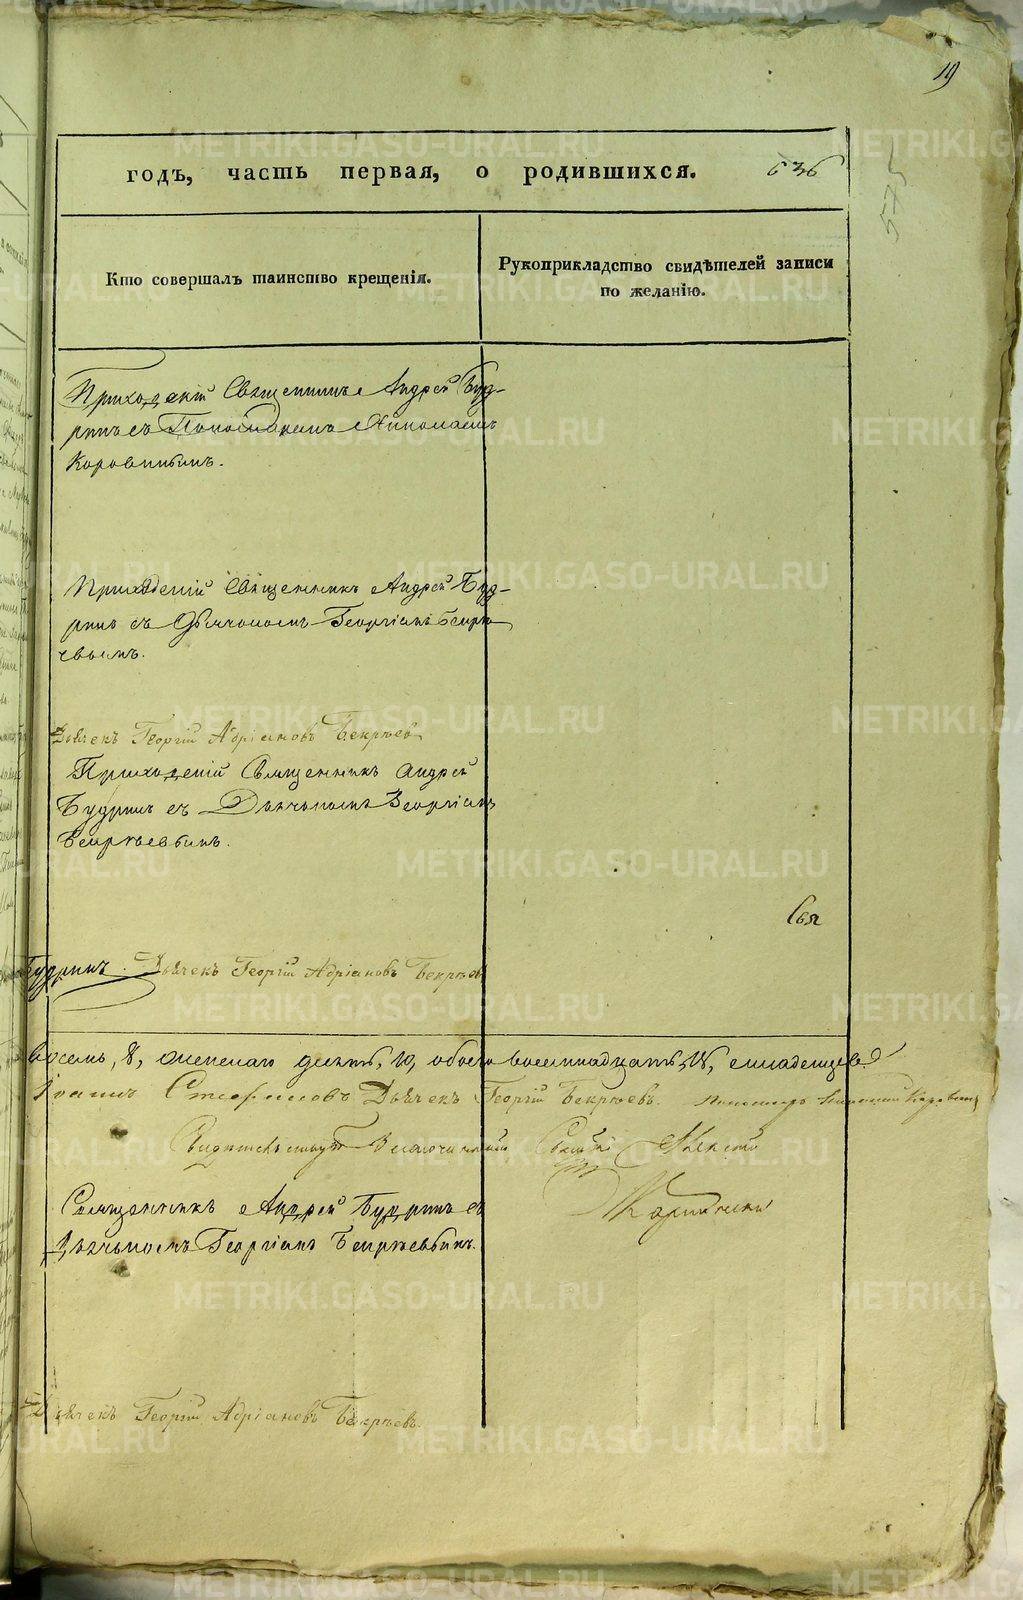 19
годъ, часть первая, о родившихся. 636
575
Кто совершалъ таинство крещенія.
Рукоприкладство свидѣтелей записи
по желанію.
Приходскій Священникъ Андрей Буд-
ринъ съ Пономаремъ Николаемъ
Коровинымъ.
Приходскій Священникъ Андрей Буд-
ринъ съ Дьячкомъ Георгіемъ Бекрѣ
евымъ.
Дьячекъ Георгій Адріановъ Бекрѣев
Приходскій Священникъ Андрей
Будринъ съ Дьячькомъ Георгіемъ
Бекрѣевымъ.
Свя
Будринъ. Дьячекъ Георгій Адріановъ Бекрѣев
восемь, 8, женскаго десять, 10, обоего восемнадцать, 18, младенцевъ.
Іоаннъ Стефановъ Дьячекъ Георгій Бекрѣевъ. Пономарь Николай Коровинъ
Свидѣтельствуетъ Благочинный
Священникъ Андрей Будринъ съ
Дьячькомъ Георгіемъ Бекрѣевымъ.
Дьячекъ Георгій Адріановъ Бекрѣевъ.
METRIKI.GASO-URAL.RU